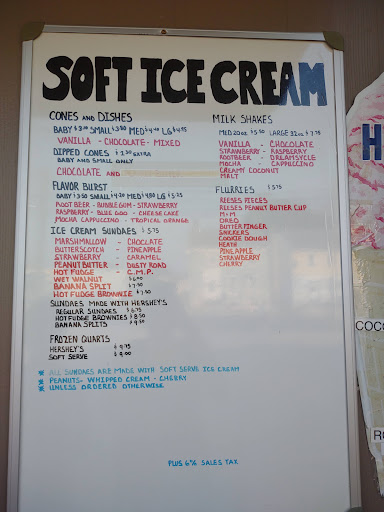 SOFT ICE CREAM
CONES AND DISHES
BABY SMALL MED LG
VANILLA - CHOCOLATE - MIXED
DIPPED CONES EXTRA
BABY AND SMALL ONLY
CHOCOLATE AND
FLAVOR BURST
BABY SMALL $4.20 MED $4.80 LG $5.25
ROOT BEER - BUBBLEGUM - STRAWBERRY
RASPBERRY - BLUE GOO - CHEESECAKE
MOCHA CAPPUCCINO - TROPICAL ORANGE
ICE CREAM SUNDAES $5.75
MARSHMALLOW - CHOCLATE
BUTTERSCOTCH - PINEAPPLE
STRAWBERRY - CARAMEL
PEANUT BUTTER - DUSTY ROAD
HOT FUDGE - C.M.P.
WET WALNUT
BANANA SPLIT $7.50
HOT FUDGE BROWNIE $7.50
SUNDAES MADE WITH HERSHEY'S
REGULAR SUNDAES $6.75
HOT FUDGE BROWNIES $8.50
BANANA SPLITS $9.50
FROZEN QUARTS
HERSHEY'S $9.75
SOFT SERVE $9.00
MILK SHAKES
MED 20oz LARGE 32oz
VANILLA - CHOCOLATE
STRAWBERRY - RASPBERRY
ROOTBEER - DREAMSYCLE
MOCHA - CAPPUCCINO
CREAMY COCONUT
MALT
FLURRIES $5.75
REESES PIECES
REESES PEANUT BUTTER CUP
M+M
OREO
BUTTERFINGER
SNICKERS
COOKIE DOUGH
HEATH
PINEAPPLE
STRAWBERRY
CHERRY
ALL SUNDAES ARE MADE WITH SOFT SERVE ICE CREAM
PEANUTS- WHIPPED CREAM - CHERRY
UNLESS ORDERED OTHERWISE
PLUS 6% SALES TAX
H
COCO